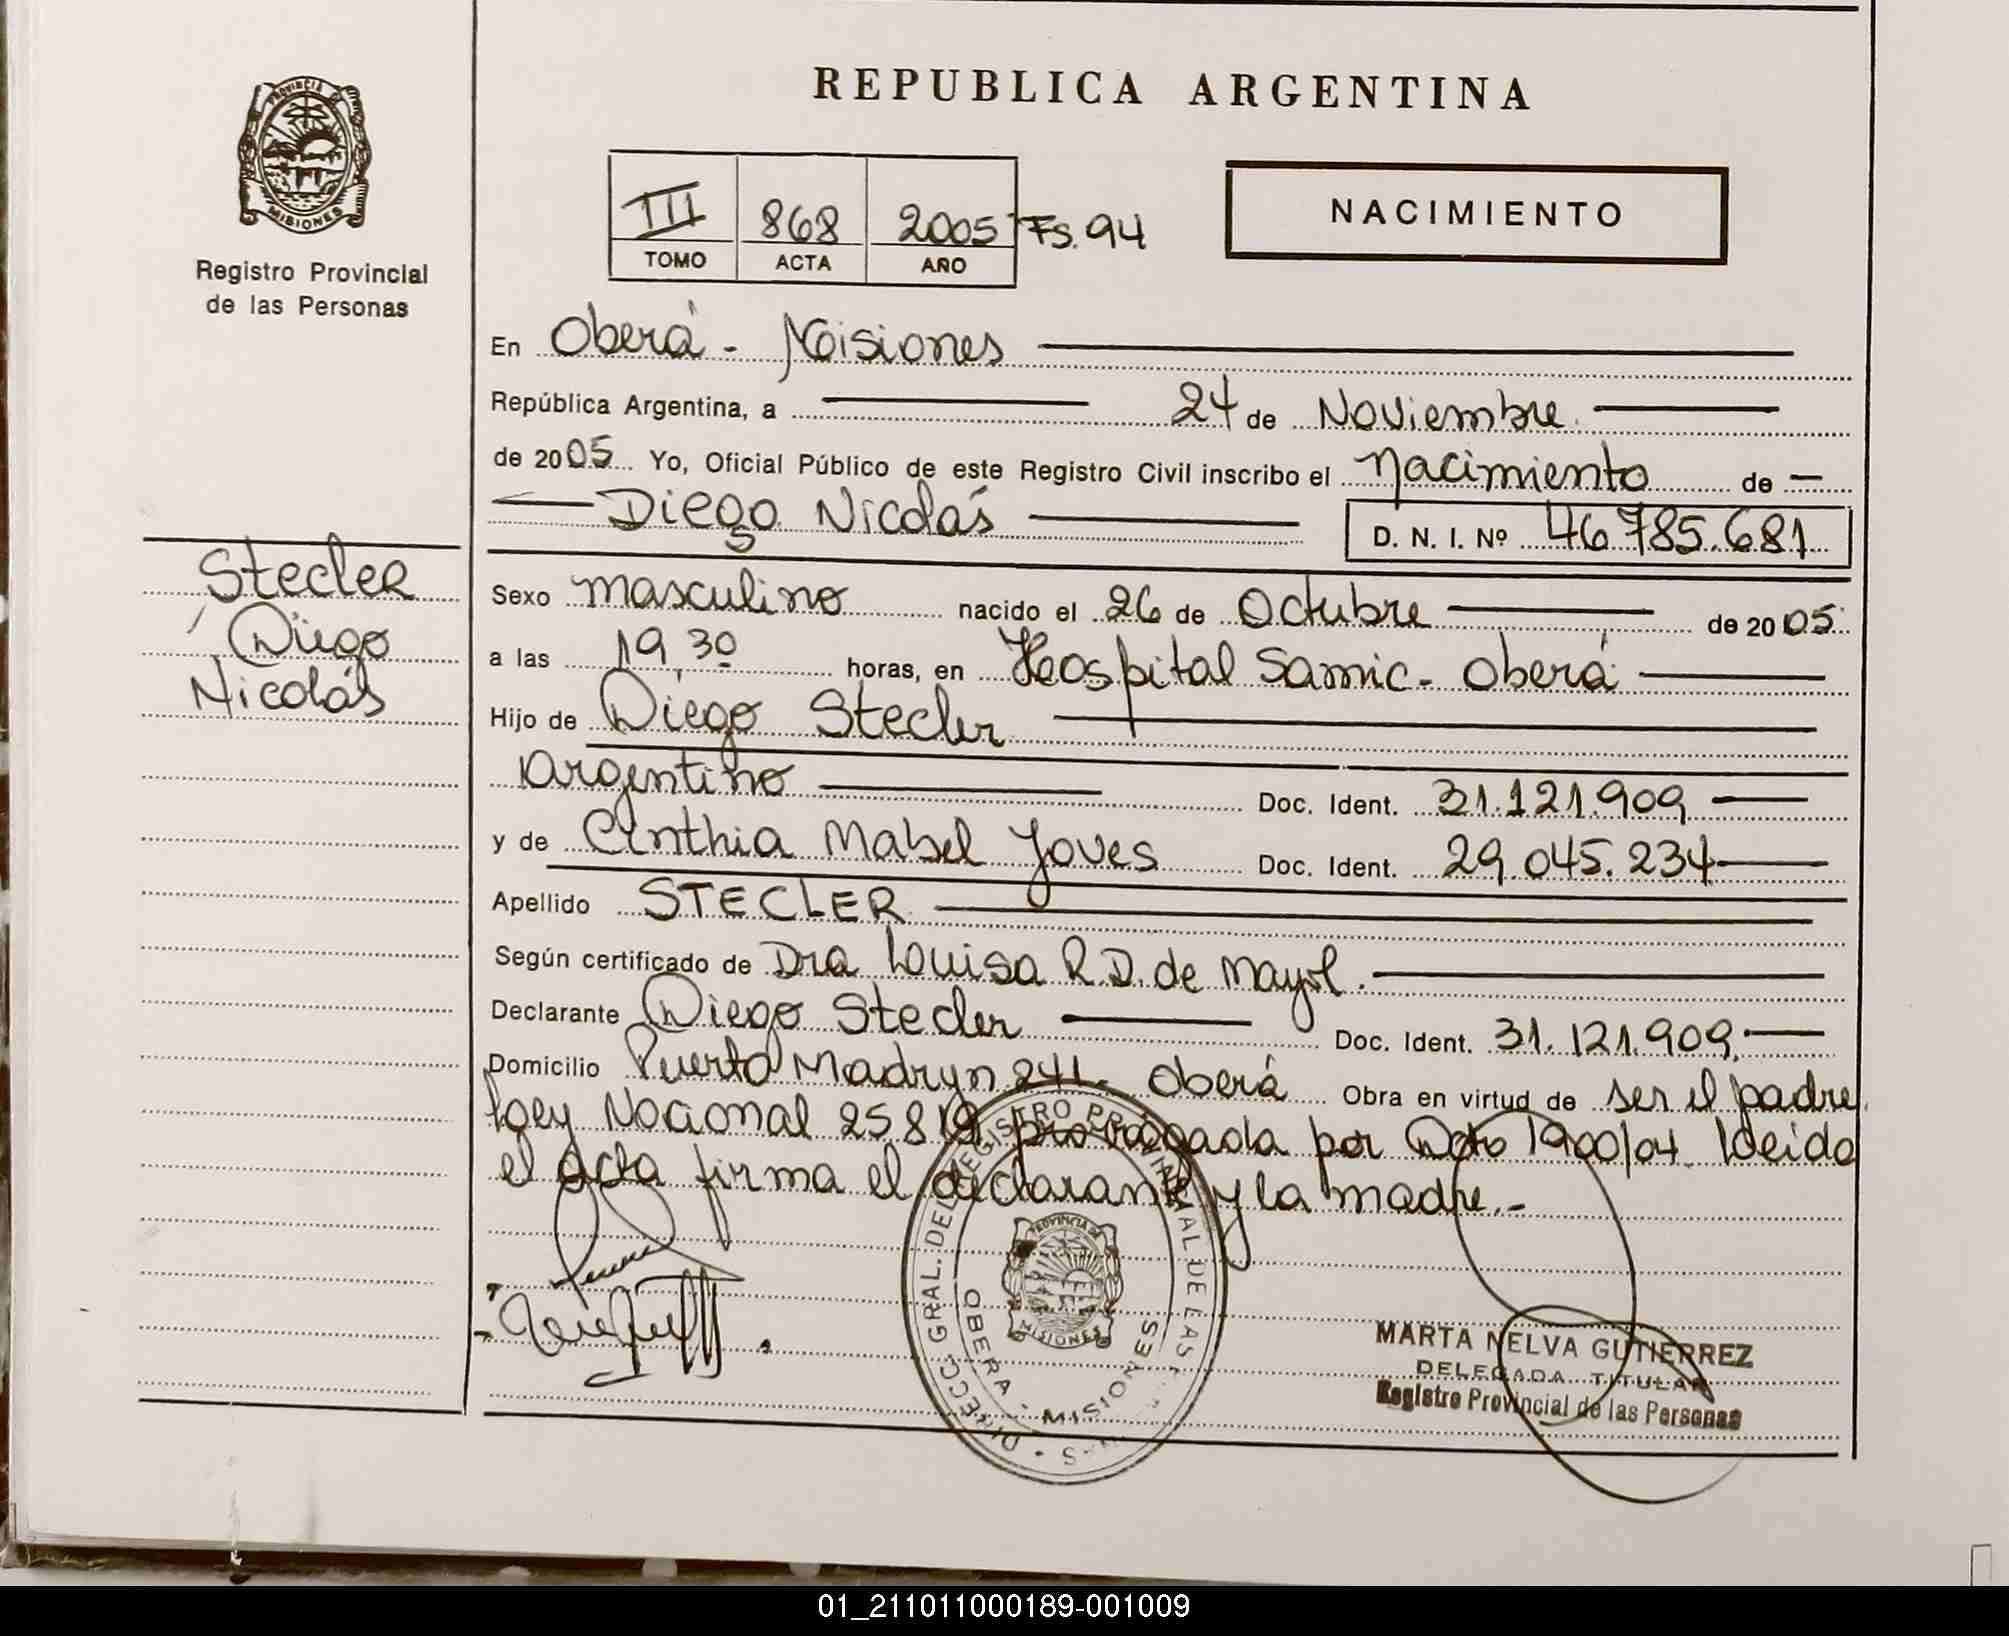 REPUBLICA ARGENTINA
PROVINCIA DE
MISIONES
Registro Provincial
de las Personas
III 868 2005 Fs. 94
TOMO ACTA AÑO
NACIMIENTO
En Oberá - Misiones
República Argentina, a 24 de Noviembre
de 2005 Yo, Oficial Público de este Registro Civil inscribo el Nacimiento de
Diego Nicolás D. N. I. Nº 46.785.681
Stecler
Diego
Nicolás
Sexo masculino nacido el 26 de Octubre de 2005
a las 19,30 horas, en Hospital Samic - Oberá
Hijo de Diego Stecler
Argentino Doc. Ident. 31.121.909
y de Cinthia Mabel Yoves Doc. Ident. 29.045.234
Apellido STECLER
Según certificado de Dra Louisa R.D. de Mayol.
Declarante Diego Stecler Doc. Ident. 31.121.909
Domicilio Puerto Madryn 241 - Oberá Obra en virtud de ser el padre
Ley Nacional 25819 prorrogada por Dcto 1900/04. Leida
el acta firma el declarante y la madre.-
DIRECC. GRAL. DEL REGISTRO PROVINCIAL DE LAS
OBERA - MISIONES
PROVINCIA DE
MISIONES
MARTA NELVA GUTIERREZ
DELEGADA TITULAR
Registro Provincial de las Personas
01_211011000189-001009